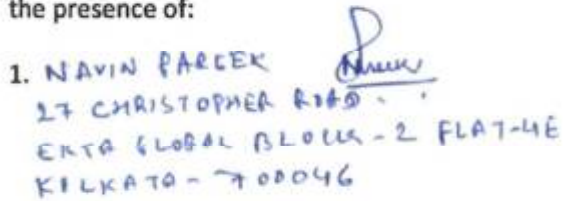 the presence of:
1. NAVIN PAREEK
27 CHRISTOPHER ROAD.
EKTA GLOBAL BLOCK-2 FLAT-4E
KOLKATA-700046